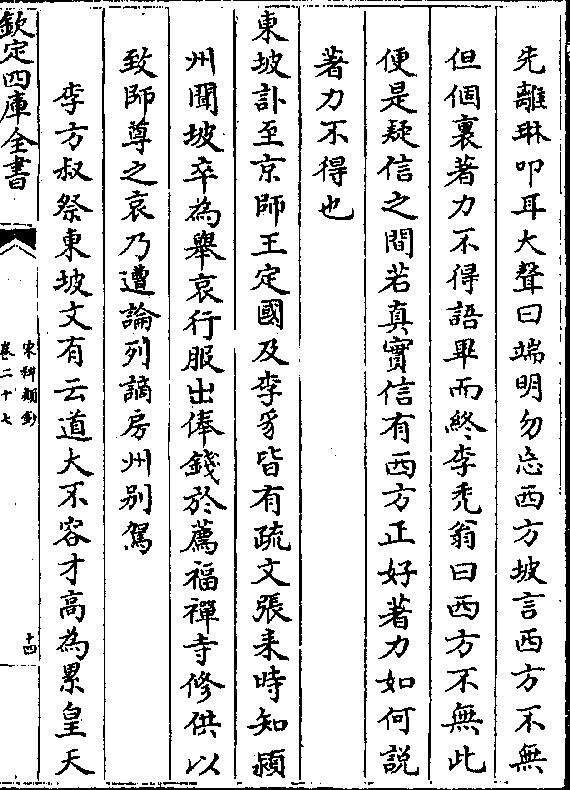 先離琳叩耳大聲曰端明勿忘西方坡言西方不無
但個裏著力不得語畢而終李禿翁曰西方不無此
便是疑信之間若真實信有西方正好著力如何說
著力不得也
東坡訃至京師王定國及李豸皆有疏文張耒時知潁
州聞坡卒為舉哀行服出俸錢於薦福禪寺修供以
致師尊之哀乃遭論列謫房州别駕
李方叔祭東坡文有云道大不容才高為累皇天
欽定四庫全書
宋稗類鈔
卷二十七
十四